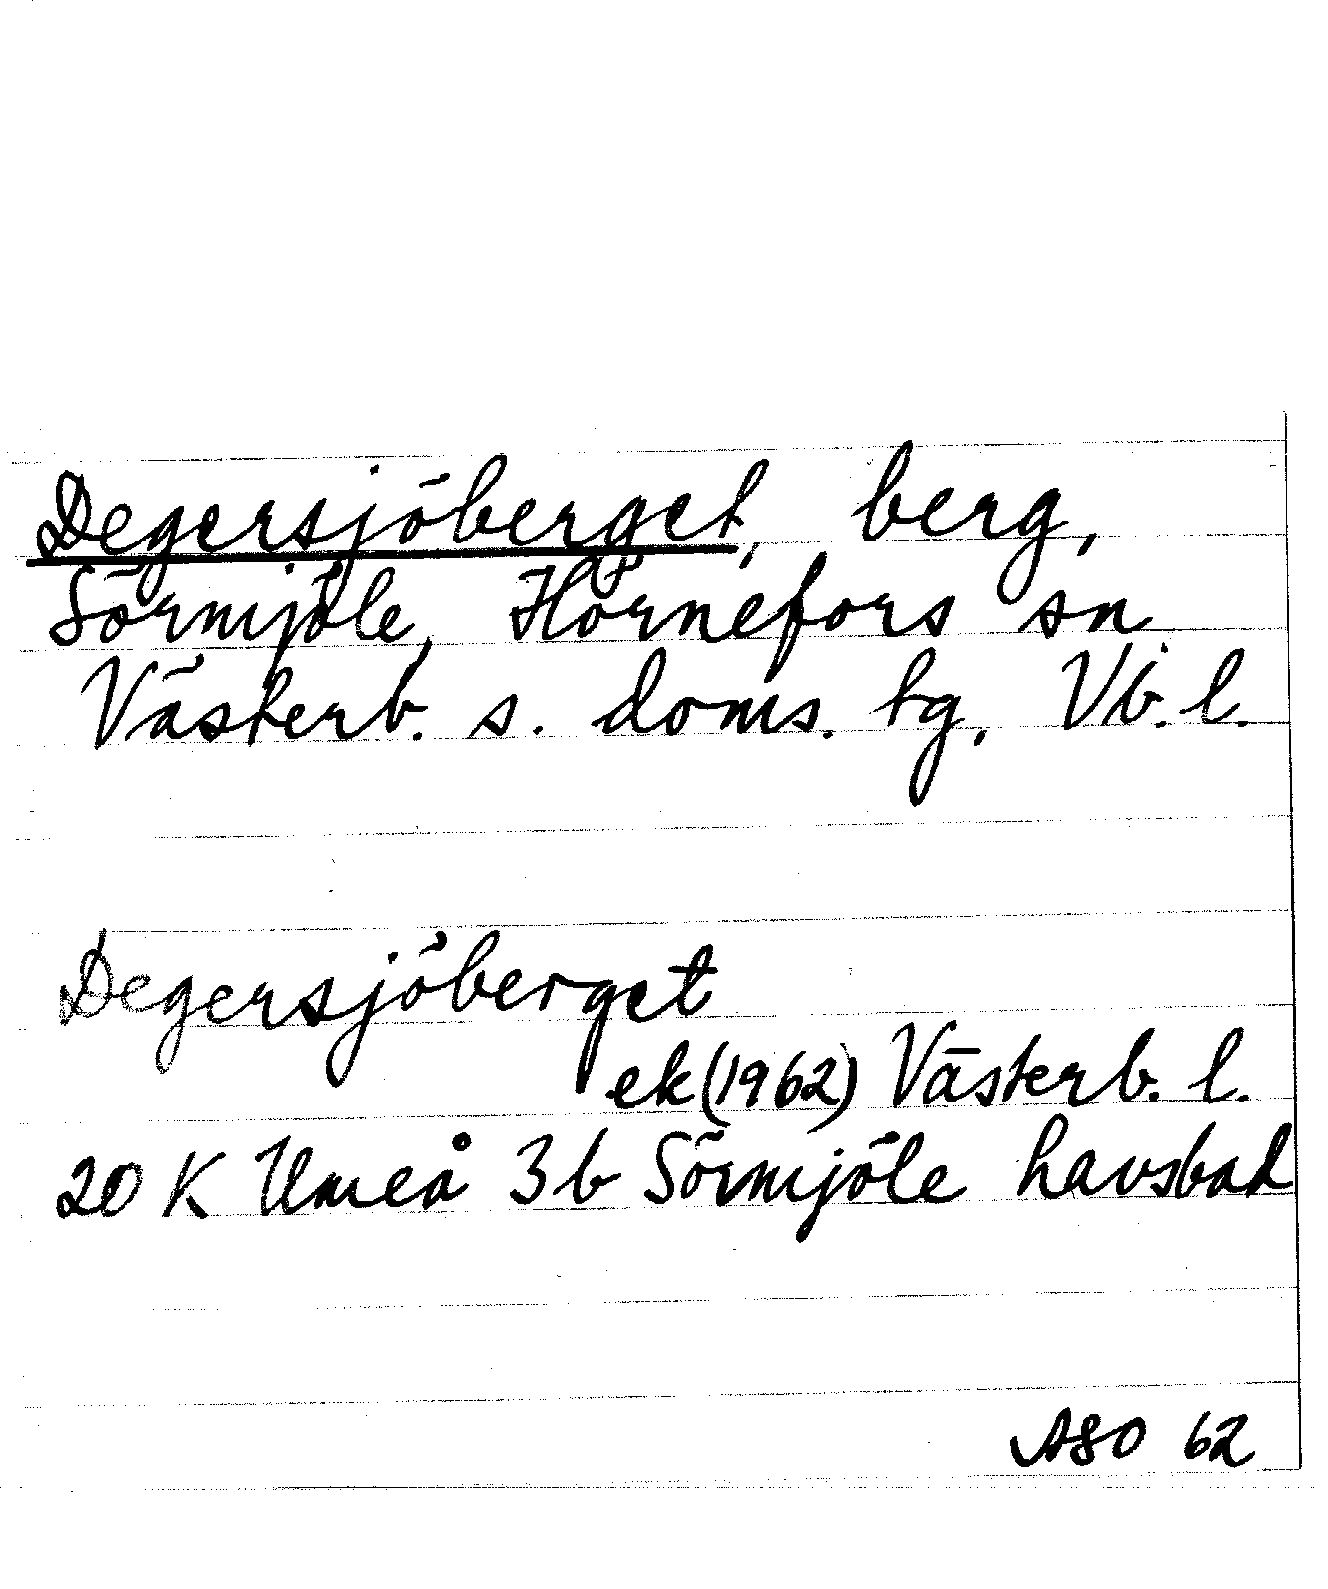 Degersjöberget, berg,
Sörmjöle, Hörnefors sn
Västerb. s. doms. tg, Vb. l.
Degersjöberget
ek (1962) Västerb. l.
20 K Umeå 3b Sörmjöle havsbad
ASO 62